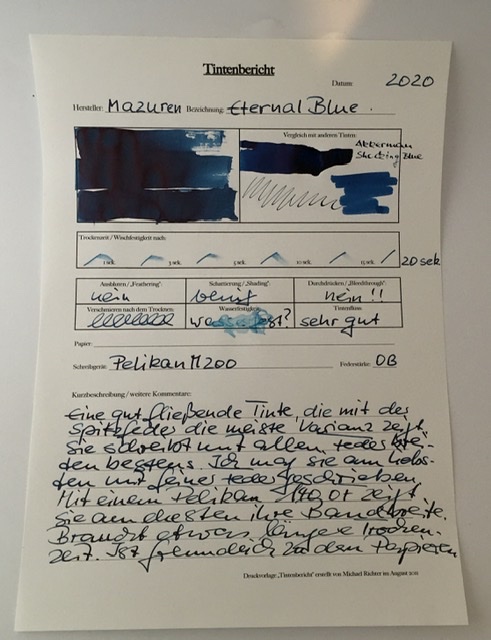 Tintenbericht
Datum: 2020
Hersteller: Mazuren Bezeichnung: Eternal Blue.
Vergleich mit anderen Tinten:
Akkerman
Shocking Blue
Trockenzeit / Wischfestigkeit nach:
1 sek. 3 sek. 5 sek. 10 sek. 15 sek. 20 sek
Ausbluten / „Feathering": Schattierung / „Shading": Durchdrücken / „Bleedthrough":
nein nein!!
Verschmieren nach dem Trocknen: Wasserfestigkeit: Tintenfluss:
sehr gut
Papier:
Schreibgerät: Pelikan M200 Federstärke: OB
Kurzbeschreibung / weitere Kommentare:
Eine gut fließende Tinte, die mit der
Spitzfeder die meiste Varianz zeigt.
Sie schreibt mit allen Federbrei-
ten bestens. Ich mag sie am liebs-
ten mit feiner Feder geschrieben.
Mit einem Pelikan 140, OF zeigt
Sie am ehesten ihre Bandbreite.
Braucht etwas längere Trocken-
zeit. Ist freundlich zu den Papieren
Druckvorlage „Tintenbericht" erstellt von Michael Richter im August 2011